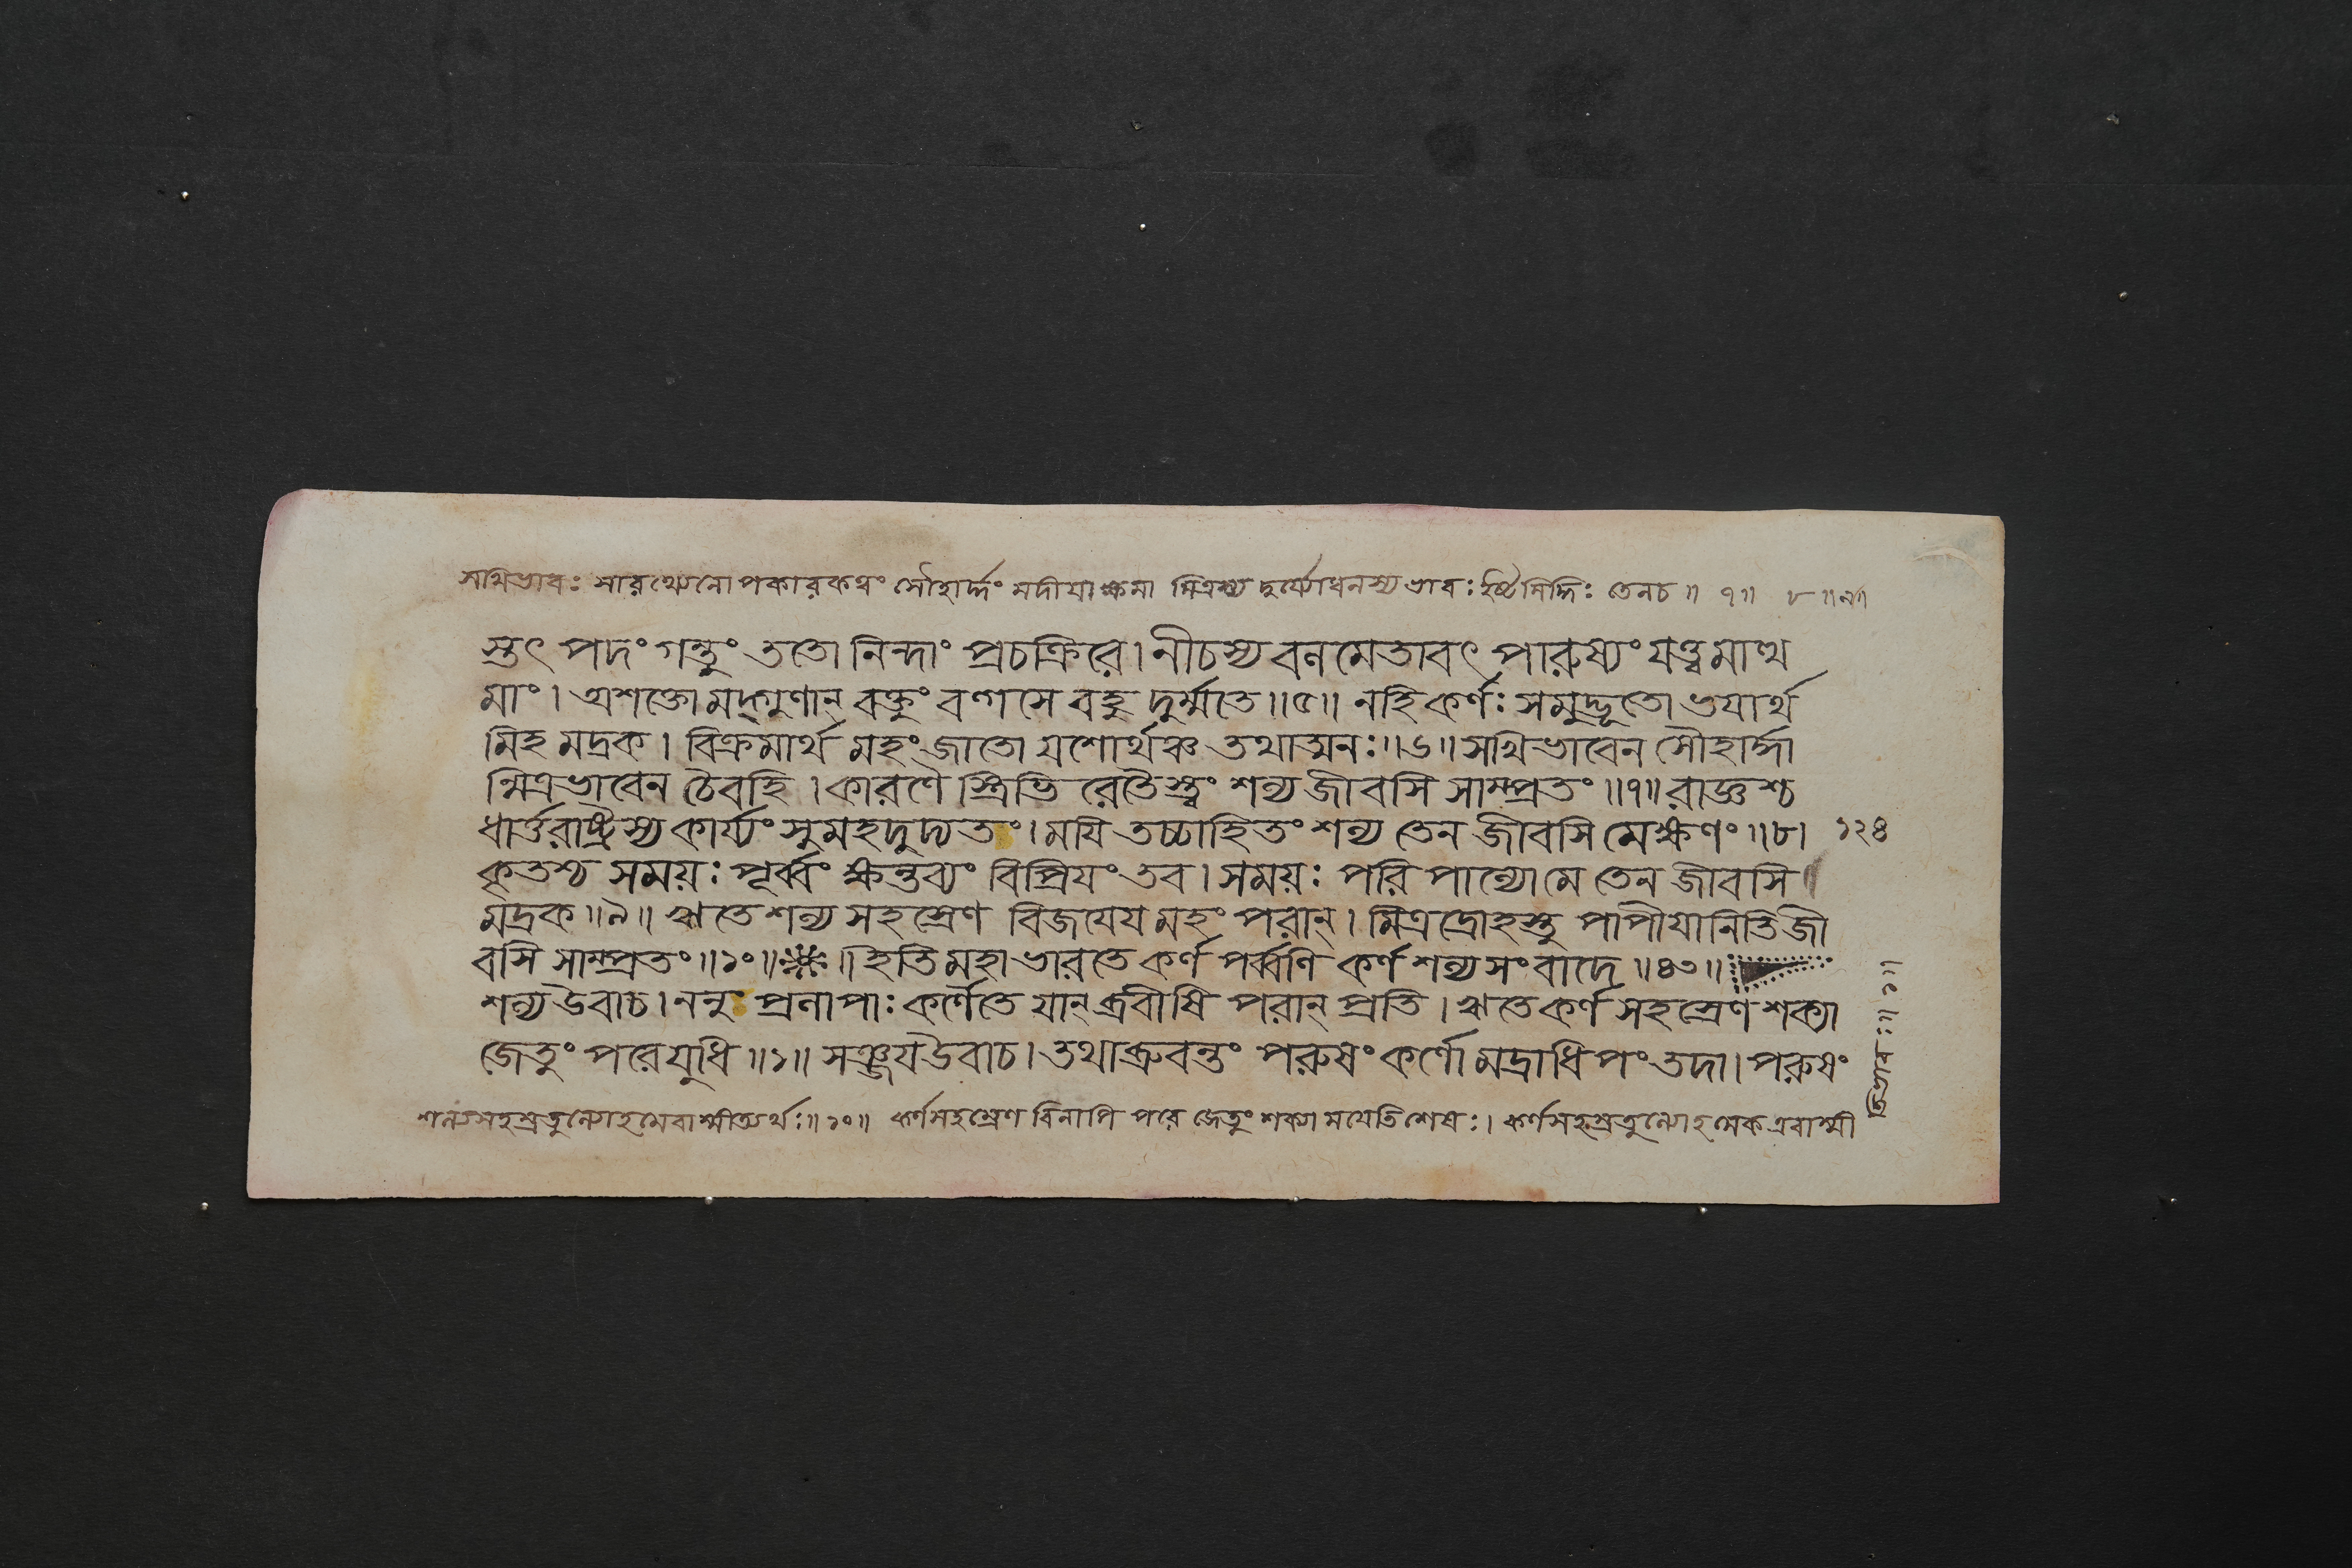 সখিভাবঃ সারথ্যেনোপকারকত্বং সৌহার্দ্দং মদীয়াক্ষমা মিত্রস্য দুর্যোধনস্যভাবঃ ইষ্টসিদ্ধিঃ তেনচ ॥ ৭॥ ৮ ॥৯॥
স্তৎ পদং গন্তুং ততো নিন্দাং প্রচক্রিরে। নীচস্য বলমেতাবৎ পারুষ্যং যত্ত্বমাত্থ
মাং। অশক্তো মদ্গুণান্ বক্তুং বল্গসে বহু দুর্ম্মতে ॥৫॥ নহি কর্ণঃ সমুদ্ভূতো ভয়ার্থ
মিহ মদ্রক। বিক্রমার্থ মহং জাতো যশোর্থঞ্চ তথাত্মনঃ॥৬॥ সখিভাবেন সৌহার্দ্দা
ন্মিত্রভাবেন চৈবহি। কারণৈ স্ত্রিভি রেতৈস্ত্বং শল্য জীবসি সাম্প্রতং ॥৭॥ রাজ্ঞশ্চ
ধার্ত্তরাষ্ট্রস্য কার্য্যং সুমহদুদ্যতং। ময়ি তচ্চাহিতং শল্য তেন জীবসি মেক্ষণং ॥৮। ১২৪
কৃতশ্চ সময়ঃ পূর্ব্বং ক্ষন্তব্যং বিপ্রিয়ং তব। সময়ঃ পরিপাল্যোমে তেন জীবসি
মদ্রক ॥৯॥ ঋতে শল্য সহস্রেণ বিজয়েয় মহং পরান্। মিত্রদ্রোহস্তু পাপীয়ানিতি জী
বসি সাম্প্রতং ॥১০॥ ॥ ইতি মহাভারতে কর্ণ পর্ব্বণি কর্ণ শল্য সংবাদে ॥৪৩॥
শল্য উবাচ। ননু প্রলাপাঃ কর্ণৈতে যান্ ব্রবীষি পরান্ প্রতি। ঋতে কর্ণ সহস্রেণ শক্যা
জেতুং পরে যুধি ॥১॥ সঞ্জয় উবাচ। তথা ব্রুবন্তং পরুষং কর্ণো মদ্রাধিপং তদা। পরুষং
শল্যসহস্রতুল্যোহমেবাস্মীত্যর্থঃ॥১০॥ কর্ণসহস্রেণ বিনাপি পরে জেতুং শক্যা ময়েতিশেষঃ। কর্ণসহস্রতুল্যোহমেক এবাস্মী
তিভাবঃ॥১॥